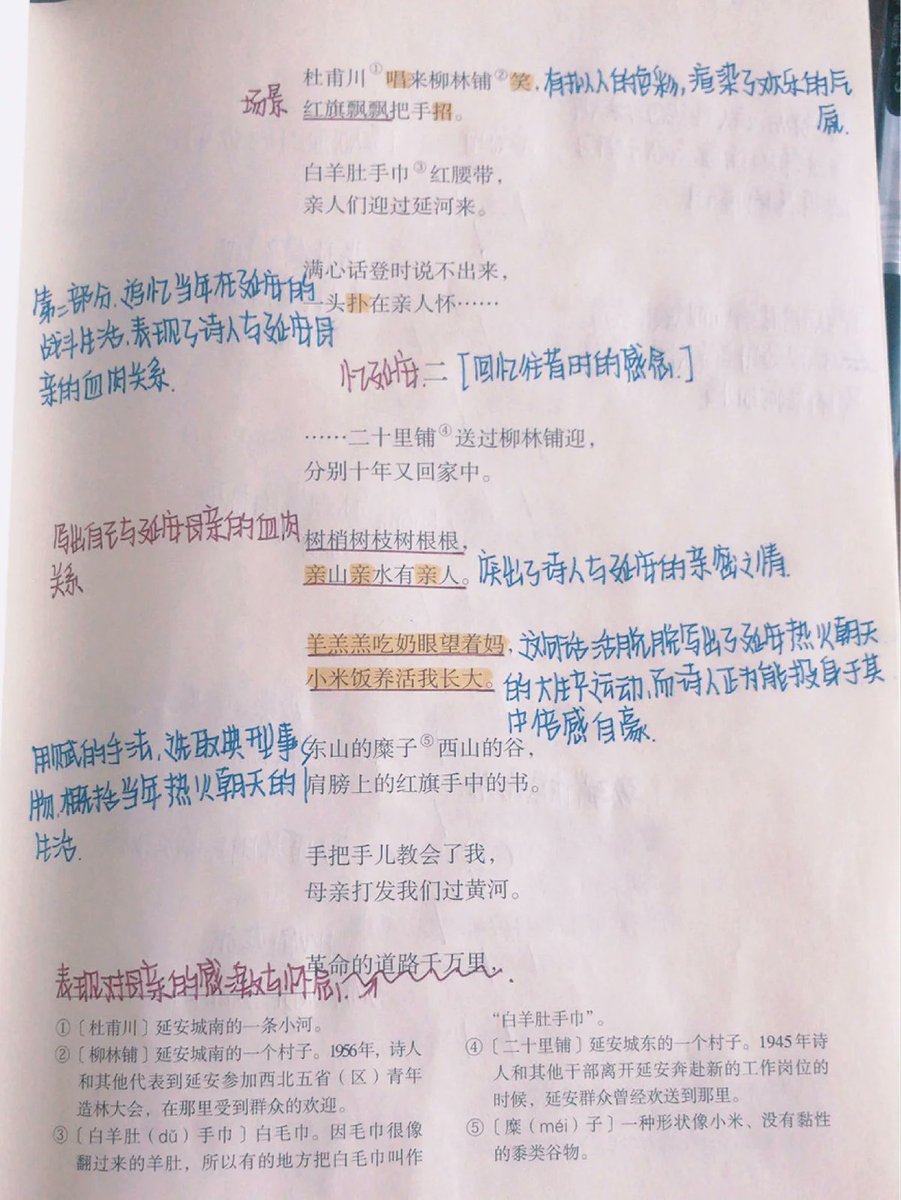 杜甫川①唱来柳林铺②笑,有拟人的色彩,渲染了欢乐的气
场景 红旗飘飘把手招。
氛.
白羊肚手巾③红腰带,
亲人们迎过延河来。
满心话登时说不出来,
一头扑在亲人怀……
第二部分,追忆当年在延安的
战斗生活.表现了诗人与延安母
亲的血肉关系.
忆延安.二[回忆往昔时的感慨.]
……二十里铺④送过柳林铺迎,
分别十年又回家中。
写出自己与延安母亲的血肉
关系
树梢树枝树根根,
亲山亲水有亲人。突出了诗人与延安的亲密之情.
羊羔羔吃奶眼望着妈,这句话活脱脱写出了延安热火朝天
小米饭养活我长大。的大生产运动,而诗人正为能投身于其
中倍感自豪.
用赋的手法,选取典型事
物.概括当年热火朝天的
生活.
东山的糜子⑤西山的谷,
肩膀上的红旗手中的书。
手把手儿教会了我,
母亲打发我们过黄河。
革命的道路千万里,
表现对母亲的感激与怀念.
①〔杜甫川〕延安城南的一条小河。
②〔柳林铺〕延安城南的一个村子。1956年,诗人
和其他代表到延安参加西北五省(区)青年
造林大会,在那里受到群众的欢迎。
③〔白羊肚(dǔ)手巾〕白毛巾。因毛巾很像
翻过来的羊肚,所以有的地方把白毛巾叫作
“白羊肚手巾”。
④〔二十里铺〕延安城东的一个村子。1945年诗
人和其他干部离开延安奔赴新的工作岗位的
时候,延安群众曾经欢送到那里。
⑤〔糜(méi)子〕一种形状像小米、没有黏性
的黍类谷物。